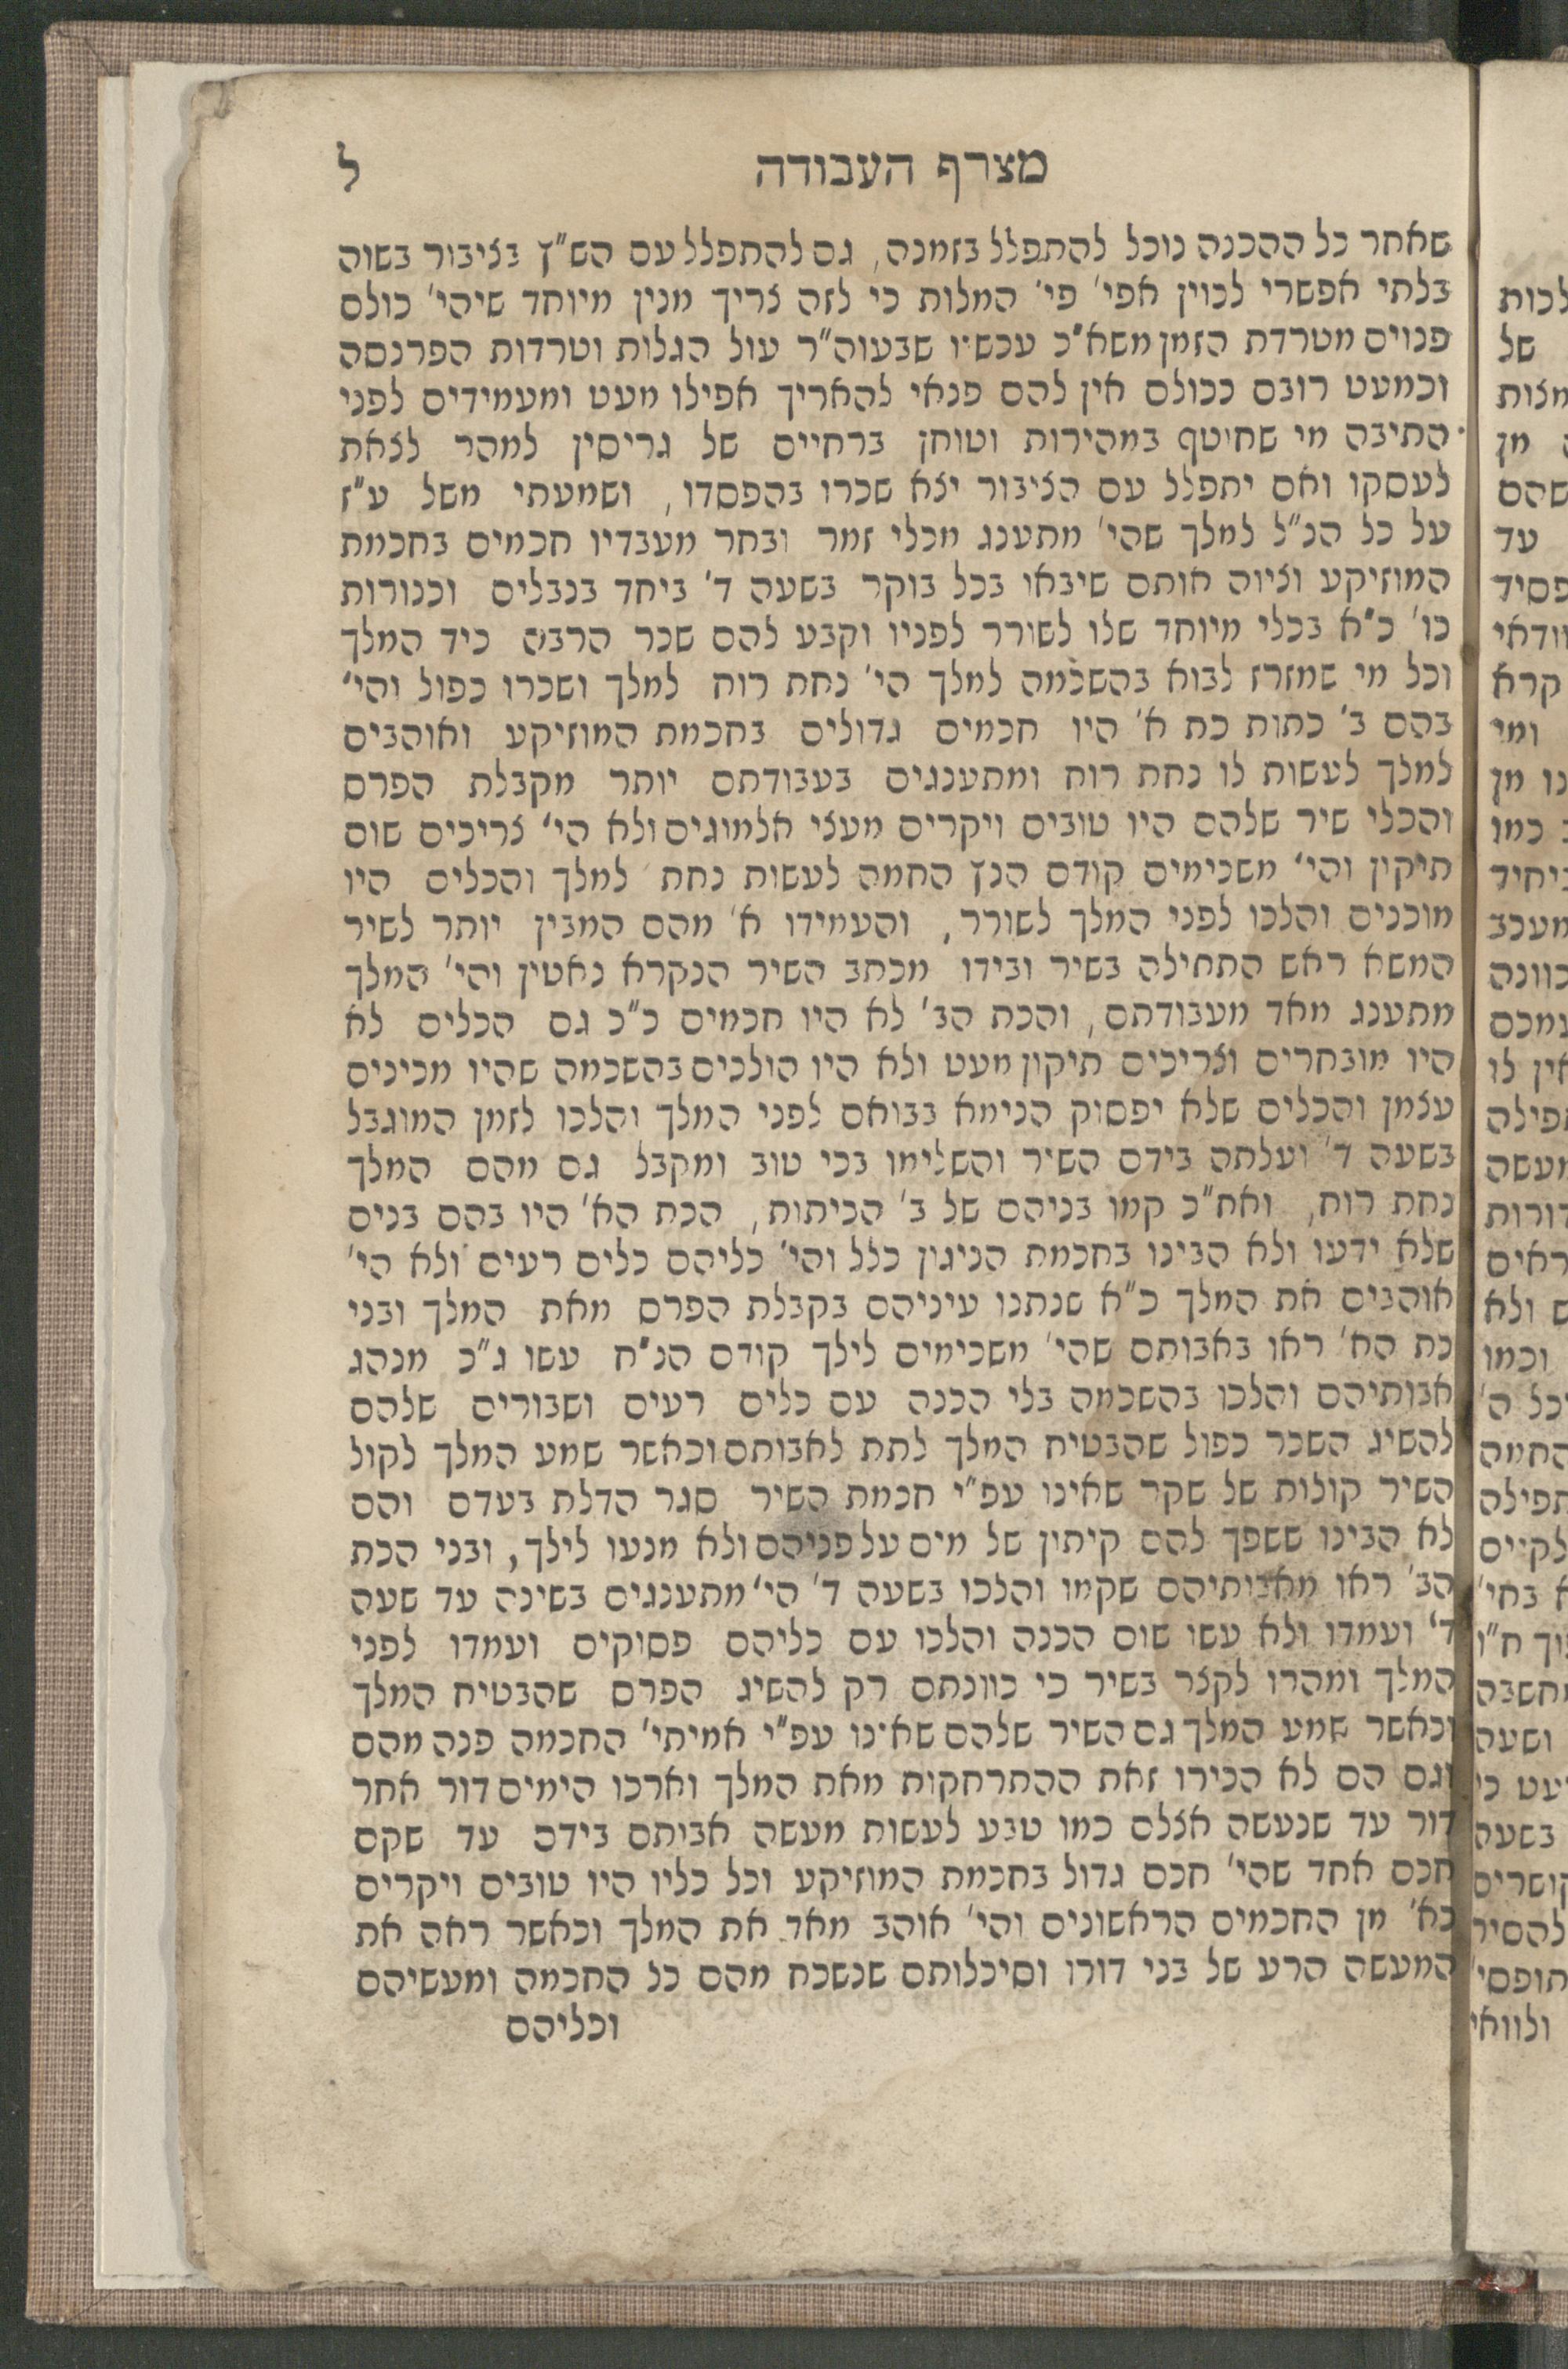 מצרף העבודה ל
שאחר כל ההכנה נוכל להתפלל בזמנה, גם להתפלל עם הש"ץ בציבור בשוה
בלתי אפשרי לכוין אפי' פי' המלות כי לזה צריך מנין מיוחד שיהי' כולם
פנוים מטרדת הזמן משא"כ עכשיו שבעוה"ר עול הגלות וטרדות הפרנסה
וכמעט רובם ככולם אין להם פנאי להאריך אפילו מעט ומעמידים לפני
התיבה מי שחוטף במהירות וטוחן ברחיים של גריסין למהר לצאת
לעסקו ואם יתפלל עם הציבור יצא שכרו בהפסדו, ושמעתי משל ע"ז
על כל הנ"ל למלך שהי' מתענג מכלי זמר ובחר מעבדיו חכמים בחכמת
המוזיקע וציוה אותם שיבאו בכל בוקר בשעה ד' ביחד בנבלים וכנורות
כו' כ"א בכלי מיוחד שלו לשורר לפניו וקבע להם שכר הרבה כיד המלך
וכל מי שמזרז לבוא בהשכמה למלך הי' נחת רוח למלך ושכרו כפול והי'
בהם ב' כתות כת א' היו חכמים גדולים בחכמת המוזיקע ואוהבים
למלך לעשות לו נחת רוח ומתענגים בעבודתם יותר מקבלת הפרס
והכלי שיר שלהם היו טובים ויקרים מעצי אלמוגים ולא הי' צריכים שום
תיקון והי' משכימים קודם הנץ החמה לעשות נחת למלך והכלים היו
מוכנים והלכו לפני המלך לשורר, והעמידו א' מהם המבין יותר לשיר
המשא ראש התחילה בשיר ובידו מכתב השיר הנקרא נאטין והי' המלך
מתענג מאד מעבודתם, והכת הב' לא היו חכמים כ"כ גם הכלים לא
היו מובחרים וצריכים תיקון מעט ולא היו הולכים בהשכמה שהיו מכינים
עצמן והכלים שלא יפסוק הנימא בבואם לפני המלך והלכו לזמן המוגבל
בשעה ד' ועלתה בידם השיר והשלימו בכי טוב ומקבל גם מהם המלך
נחת רוח, ואח"כ קמו בניהם של ב' הכיתות, הכת הא' היו בהם בנים
שלא ידעו ולא הבינו בחכמת הניגון כלל והי' כליהם כלים רעים ולא הי'
אוהבים את המלך כ"א שנתנו עיניהם בקבלת הפרס מאת המלך ובני
כת הא' ראו באבותם שהי' משכימים לילך קודם הנ"ח עשו ג"כ מנהג
אבותיהם והלכו בהשכמה בלי הכנה עם כלים רעים ושבורים שלהם
להשיג השכר כפול שהבטיח המלך לתת לאבותם וכאשר שמע המלך לקול
השיר קולות של שקר שאינו עפ"י חכמת השיר סגר הדלת בעדם והם
לא הבינו ששפך להם קיתון של מים על פניהם ולא מנעו לילך, ובני הכת
הב' ראו מאבותיהם שקמו והלכו בשעה ד' הי' מתענגים בשינה עד שעה
ד' ועמדו ולא עשו שום הכנה והלכו עם כליהם פסוקים ועמדו לפני
המלך ומהרו לקצר בשיר כי כוונתם רק להשיג הפרס שהבטיח המלך
וכאשר שמע המלך גם השיר שלהם שאינו עפ"י אמיתי' החכמה פנה מהם
וגם הם לא הכירו זאת ההתרחקות מאת המלך וארכו הימים דור אחר
דור עד שנעשה אצלם כמו טבע לעשות מעשה אבותם בידם עד שקם
חכם אחד שהי' חכם גדול בחכמת המוזיקע וכל כליו היו טובים ויקרים
כא' מן החכמים הראשונים והי' אוהב מאד את המלך וכאשר ראה את
המעשה הרע של בני דורו וסיכלותם שנשכח מהם כל החכמה ומעשיהם
וכליהם